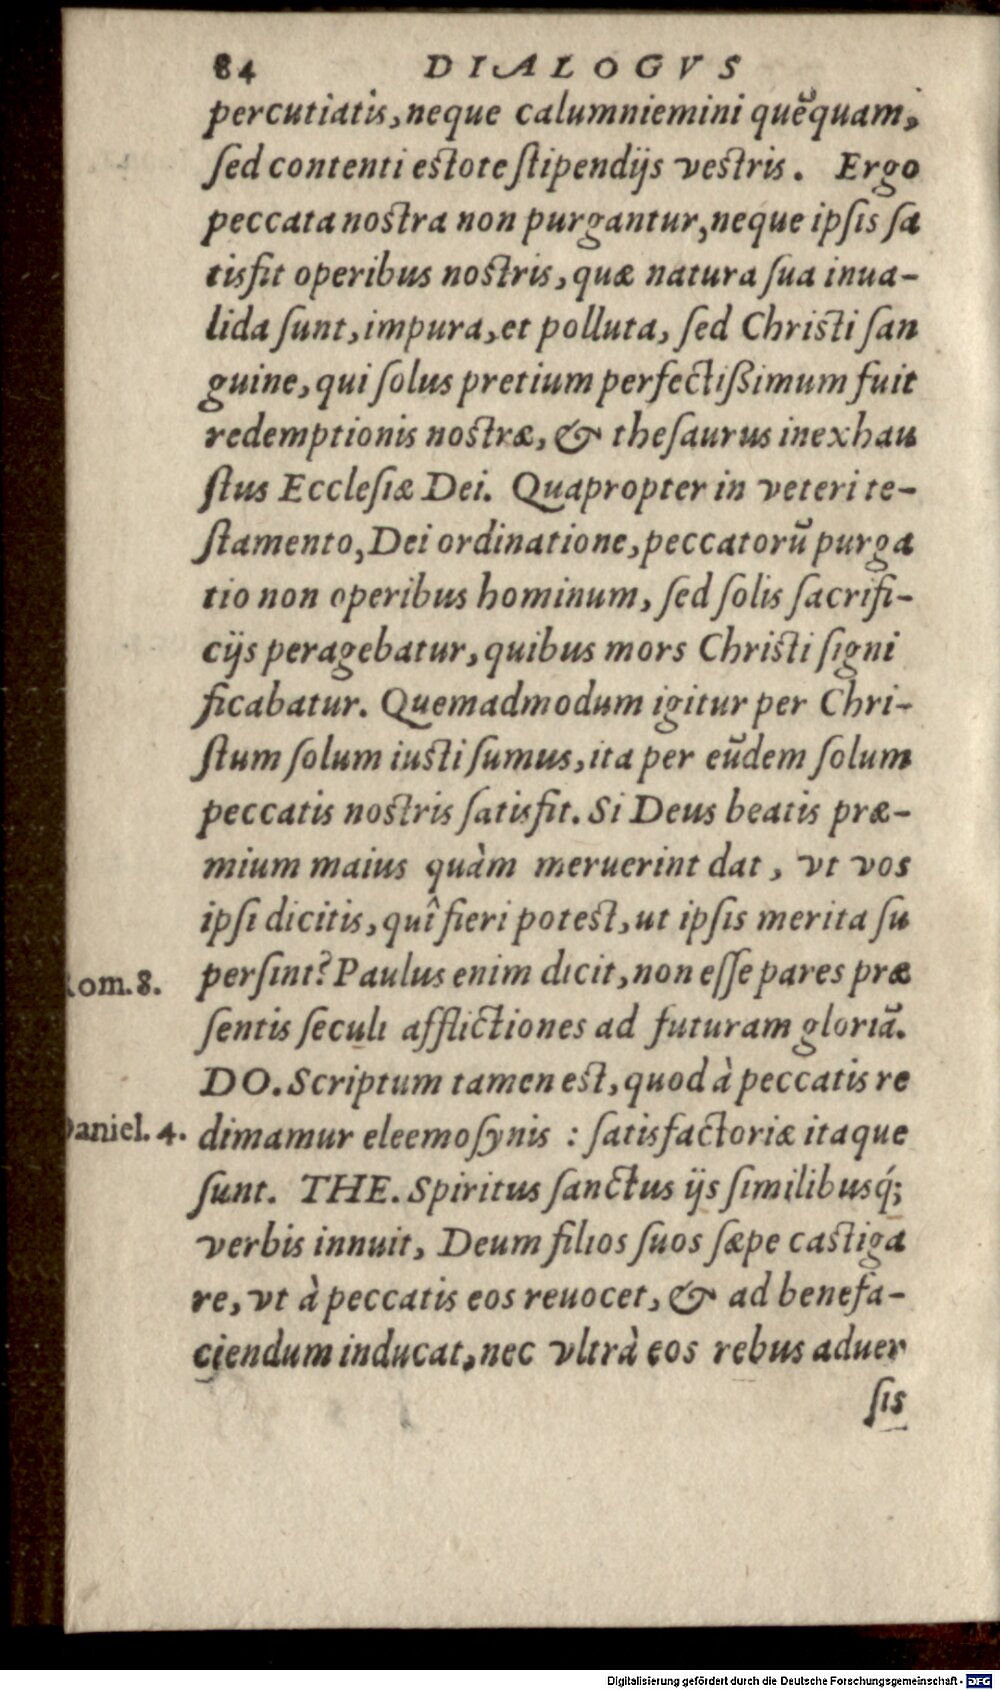 84 DIALOGVS
percutiatis, neque calumniemini quēquam,
ſed contenti eſtote ſtipendijs veſtris. Ergo
peccata noſtra non purgantur, neque ipſis ſa
tisfit operibus noſtris, quæ natura ſua inua-
lida ſunt, impura, et polluta, ſed Chriſti ſan
guine, qui ſolus pretium perfectißimum fuit
redemptionis noſtræ, & theſaurus inexhau
ſtus Eccleſiæ Dei. Quapropter in veteri te-
ſtamento, Dei ordinatione, peccatorū purga
tio non operibus hominum, ſed ſolis ſacrifi-
cijs peragebatur, quibus mors Chriſti ſigni
ficabatur. Quemadmodum igitur per Chri-
ſtum ſolum iuſti ſumus, ita per eūdem ſolum
peccatis noſtris ſatisfit. Si Deus beatis præ-
mium maius quàm meruerint dat, vt vos
ipſi dicitis, quî fieri poteſt, ut ipſis merita ſu
Rom. 8. perſint? Paulus enim dicit, non eſſe pares præ
ſentis ſeculi afflictiones ad futuram gloriā.
DO. Scriptum tamen eſt, quod à peccatis re
Daniel. 4. dimamur eleemoſynis : ſatisfactoriæ itaque
ſunt. THE. Spiritus ſanctus ijs ſimilibusq́;
verbis innuit, Deum filios ſuos ſæpe caſtiga
re, vt à peccatis eos reuocet, & ad benefa-
ciendum inducat, nec vltrà eos rebus aduer
ſis
Digitalisierung gefördert durch die Deutsche Forschungsgemeinschaft - DFG